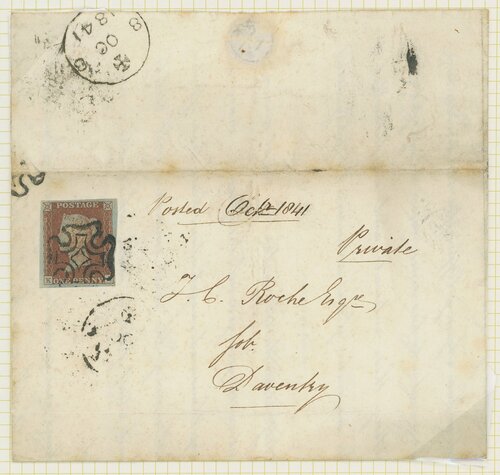 8
OC
1841
POSTAGE
ONE PENNY
Posted Octr 1841
Private
T. C. Roche Esqre
Daventry